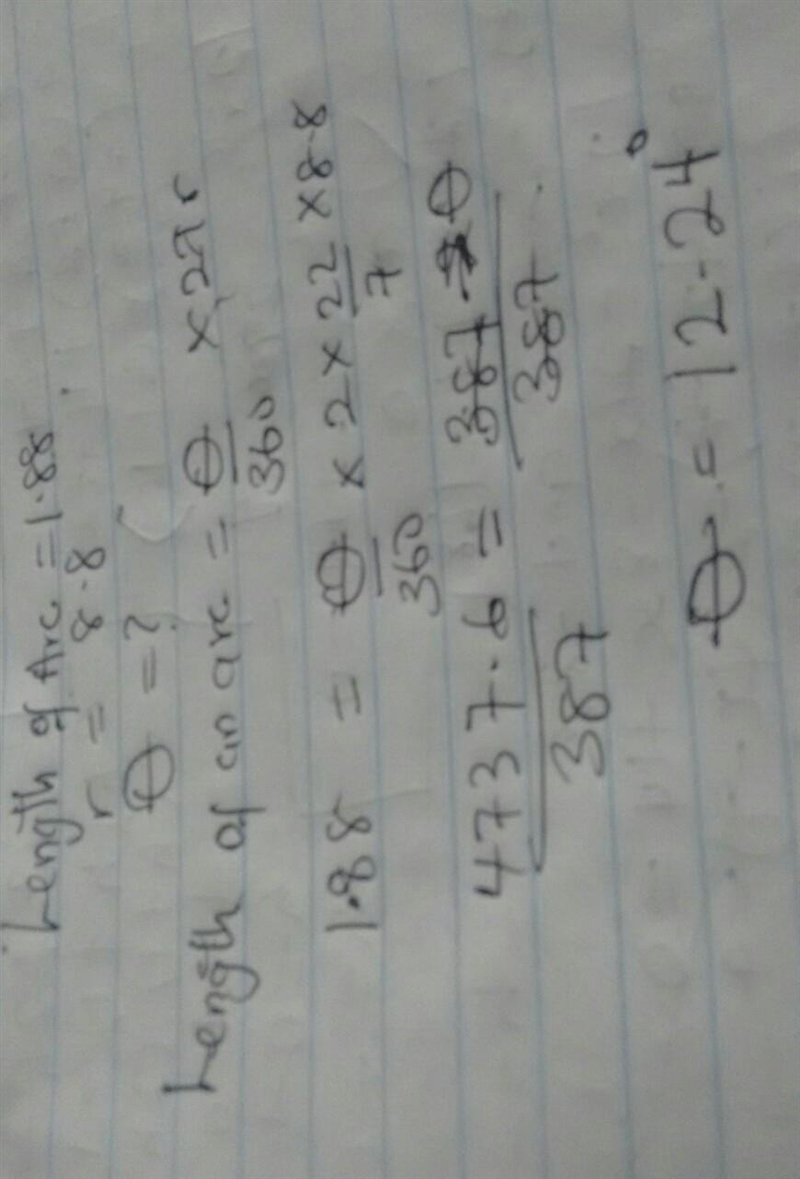 Length of Arc = 1.88.
r = 8.8
θ = ?
Length of an arc = θ/360 × 2πr
1.88 = θ/360 × 2 × 22/7 × 8.8
4737.6/387 = 387.2θ/387
θ = 12.24°